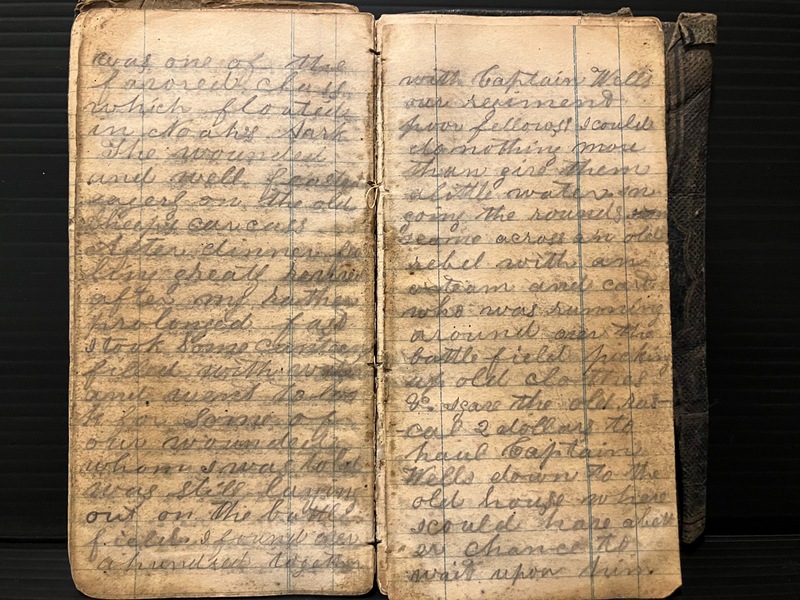 was one of the
favored class
which floated
in Noah's Ark
The wounded
and well feasted
on the old
sheeps carcass
After dinner
great
after my rather
prolonged fast
I took some canteens
filled with water
and went to loo
k for some of
our wounded
whom I was told
was still laying
out on the battle
field I found over
a hundred together
with Captain Wells
our regiment
poor fellows I could
do nothing more
than give them
a little water in
going the rounds
I come across an old
rebel with an
o team and cart
who was running
around over the
battle field picking
up old clothes
&c. I gave the old ras-
-cal 2 dollars to
haul Captain
Wells down to the
old house where
I could have a bett
er chance to
wait upon him.